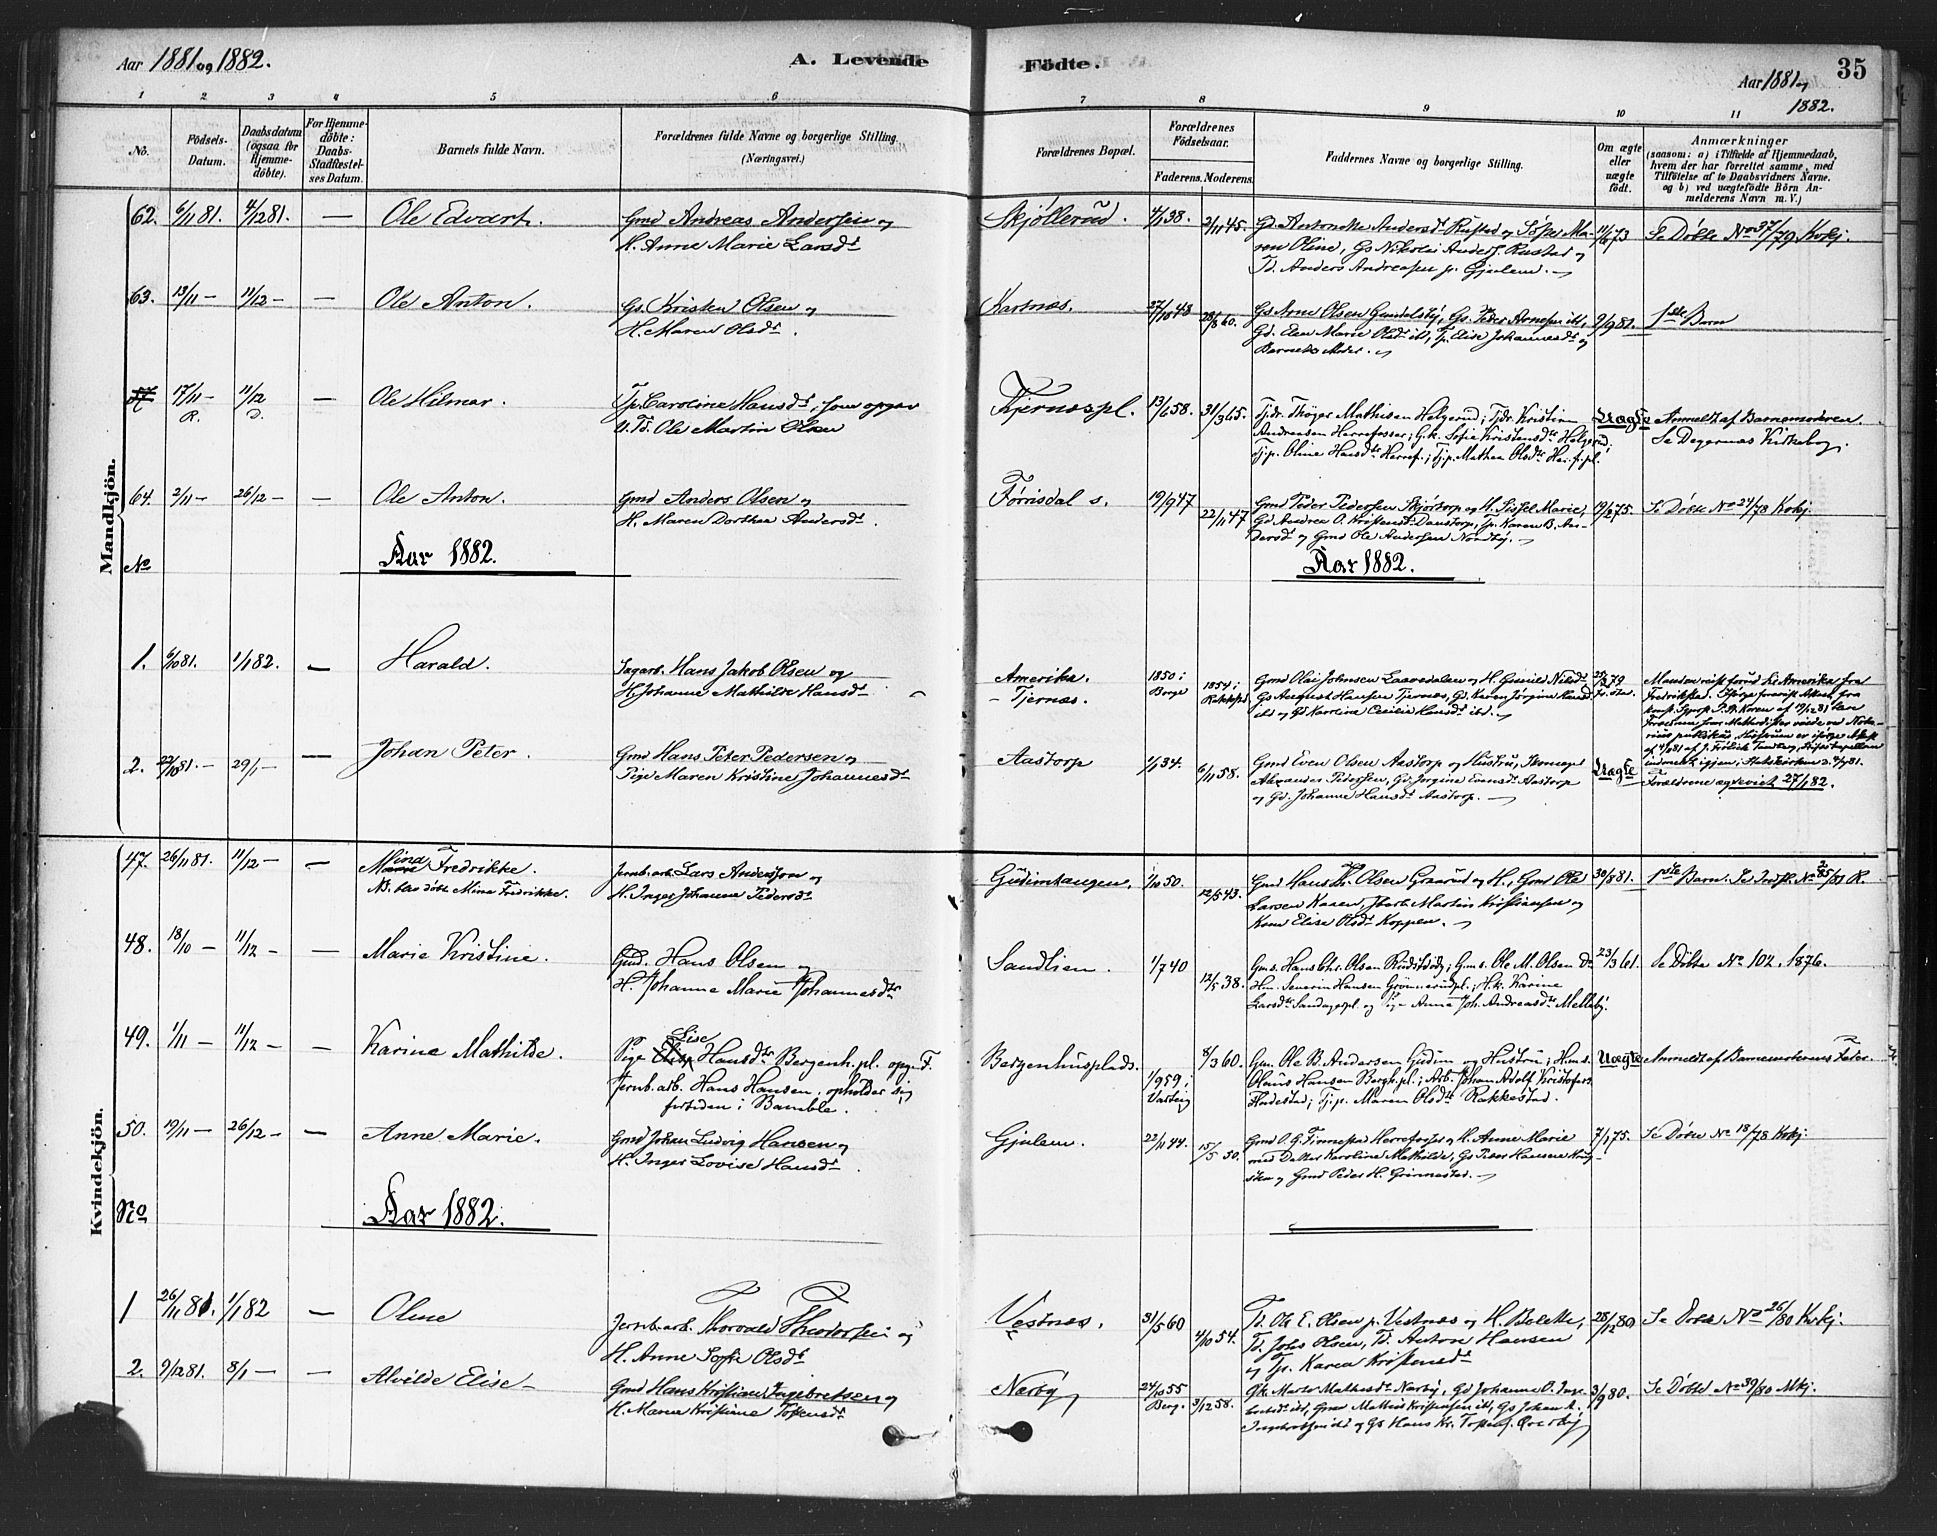 Aar 1881 og 1882.
A. Levende
Födte.
Aar 1881 og
1882.
35
1
2
3
4
5
6
7
8
9
10
11
No.
Födsels-
Datum.
Daabsdatum
(ogsaa for
Hjemme-
döbte).
For Hjemme-
döbte:
Daabs-
Stadfæstel-
ses Datum.
Barnets fulde Navn.
Forældrenes fulde Navne og borgerlige Stilling.
(Næringsvei.)
Forældrenes Bopæl.
Forældrenes
Födselsaar.
Faderens. Moderens.
Faddernes Navne og borgerlige Stilling.
Om ægte
eller
uægte
födt.
Anmærkninger
(saasom: a) i Tilfælde af Hjemmedaab,
hvem der har forrettet samme, med
Tilföielse af to Daabsvidners Navne.
og b) ved uægtefödte Börn An-
melderens Navn m. V.)
Mandkjön.
62. 6/11 81. 4/12 81. — Ole Edvart. Gmd Andreas Andersen og
H. Anne Marie Larsdt
Skjöllerud. 4/1 38. 2/11 45.
Maren Oline, Gs Nikolai Anders. Rustad og
Td. Anders Andreasen p. Gjulem.
11/6 73 Se Döbte No 37/79 Kirkj.
63. 13/11 — 11/12 — — Ole Anton. Gs. Kristen Olsen og
H. Maren Olsdt.
Kartnæs. 27/10 48 28/8 60. Gs Arne Olsen Gundelsby, Gs. Peder Arnesen ibd,
Gd. Elen Marie Olsdt ibd, Tp. Elise Johannesdt og
Barnets Moder.
2/9 81. 1ste Barn
17/11 — R. 11/12 D. — Ole Hilmar. Tp. Caroline Hansdt, som opgav
U. Td. Ole Martin Olsen
Tjernæspl. 13/6 58. 31/3 65. Tjdr. Thöger Mathisen Helgerud; Tjdr. Kristian
Andreasen Herrefosser; G.k. Sofie Kristensdtr Helgerud;
Tj.p. Oline Hansdtr Herref.; Tj.p. Mathea Olsdtr
Uægte Anmeldt af Barnemoderen.
Se Degernæs Kirkebog.
64. 2/11 — 26/12 — — Ole Anton. Gmd Anders Olsen og
H. Maren Dorthea Andersdt.
Förrisdal s. 19/9 47 22/11 47 Gmd Peder Pedersen Skjörtorp og H. Sissel Marie,
Gd. Andrea O. Kristensdt Danstorp, Tp. Karen B. An-
dersdt og Gmd Ole Andersen Nordby.
19/2 75. Se Döbte No 24/78 Kirkj.
No
Aar 1882.
Aar 1882.
1. 6/10 81. 1/1 82. — Harald. Sagarb. Hans Jakob Olsen og
H. Johanne Mathilde Hansdt
Amerika.
— Tjernæs.
1850 i
Borge
1854 i
Rakkestad
Gmd Olai Johnsen Laavedalen og H. Gunild Nilsdt
Gs August Hansen Tjernæs, Gd. Karen Jörgine Hansdt
ibd og Gd Karoline Cecilie Hansdt ibd.
Manden reist forud til Amerika fra
Fredrikstad.
2. 22/10 81. — 29/1 — — Johan Peter. Gmd Hans Peter Pedersen og
Pige Maren Kristine Johannesdt
Aastorp 1/1 34. 6/11 58. Gmd Even Olsen Aastorp og Hustru,
Alexander Pedersen, Gd. Jörgine Evensdt Aastorp
og Gd. Johanne Hansdt Aastorp.
Uægte
Forældrene ægteviet 27/1 82.
Kvindekjön.
47. 26/11 81. 11/12 — — Mina Fredrikke.
NB. blev döbt Mina Fredrikke.
Jernb. arb. Lars Andersson og
H. Inger Johanne Pedersdt
Gudimtangen. 1/10 50. 12/5 43. Gmd Hans Th. Olsen Graarud og H., Gmd Ole
Larsen Kasen, Jbarb. Martin Kristiansen og
Kone Elise Olsdt Koppen.
30/8 81. 1ste Barn.
48. 18/10 — 11/12 — — Marie Kristine. Gmd. Hans Olsen og
H. Johanne Marie Johannesdtr
Sandlien. 1/7 40 12/5 38. Gms. Hans Chr. Olsen Rudstödy; Gms. Ole M. Olsen Do
Hm. Severin Hansen Grönnerudpl.; H.k. Karine
Larsdtr Sandagerpl og Pige Anne Joh. Andreasdtr Melleby.
23/3 61. Se Döbte No 102. 1876.
49. 1/11 — 11/12 — — Karine Mathilde. Pige Lise Hansdtr Bergenh. pl. opgivet F.
Jernb. arb. Hans Hansen, opholder sig
fortiden i Bamble.
Bergenhusplads. 1/9 59 i
Varteig
8/3 60. Gm. Ole B. Andersen Gudim og Hustru; Hms.
Olaus Hansen Bergh.pl.; Arb. Johan Adolf Kristofers.
Hadestad; Tj.p. Maren Olsdtr Rakkestad.
Uægte Anmeldt af Barnemoderens Fader.
50. 19/11 — 26/12 — — Anne Marie. Gmd Johan Ludvig Hansen og
H. Inger Lovise Hansdt.
Gjulem. 22/11 44. 15/5 50. Gmd O. G. Finnestad Herrefosser og H. Anne Marie
med Datter Karoline Mathilde, Gs Peder Hansen
og Gmd Peder H. Grimmestad.
7/1 75. Se Döbte No 18/78 Kirkj.
No
Aar 1882.
1 26/11 81. 1/1 82 — Oline Jernb. arb. Thorvald Theodorsen og
H. Anne Sofie Olsdt
Vestnæs. 31/5 60 4/10 54. Td. Ole E. Olsen p. Vestnæs og H. Bolette,
Td. Johs Olsen, Td. Anton Hansen
og Tp. Karen Kristensdt
28/12 80 Se Döbte No 26/80 Kirkj.
2. 9/12 81. 8/1 — Alvilde Elise — Gmd Hans Kristian Ingebretsen og
H. Maren Kristiane Tostensdt
Narby 24/10 55
Berg. 3/12 58. Gk. Marte Mathisdt Narby, Gd Johanne O. Inge-
bretsdt ibd, Gmd Mathias Kristiansen ibd, Gs Johan A.
Ingebretsen ibd og Gs Hans Kr. Tostens. Överby
3/9 80. Se Döbte No 39/80 Mkj.